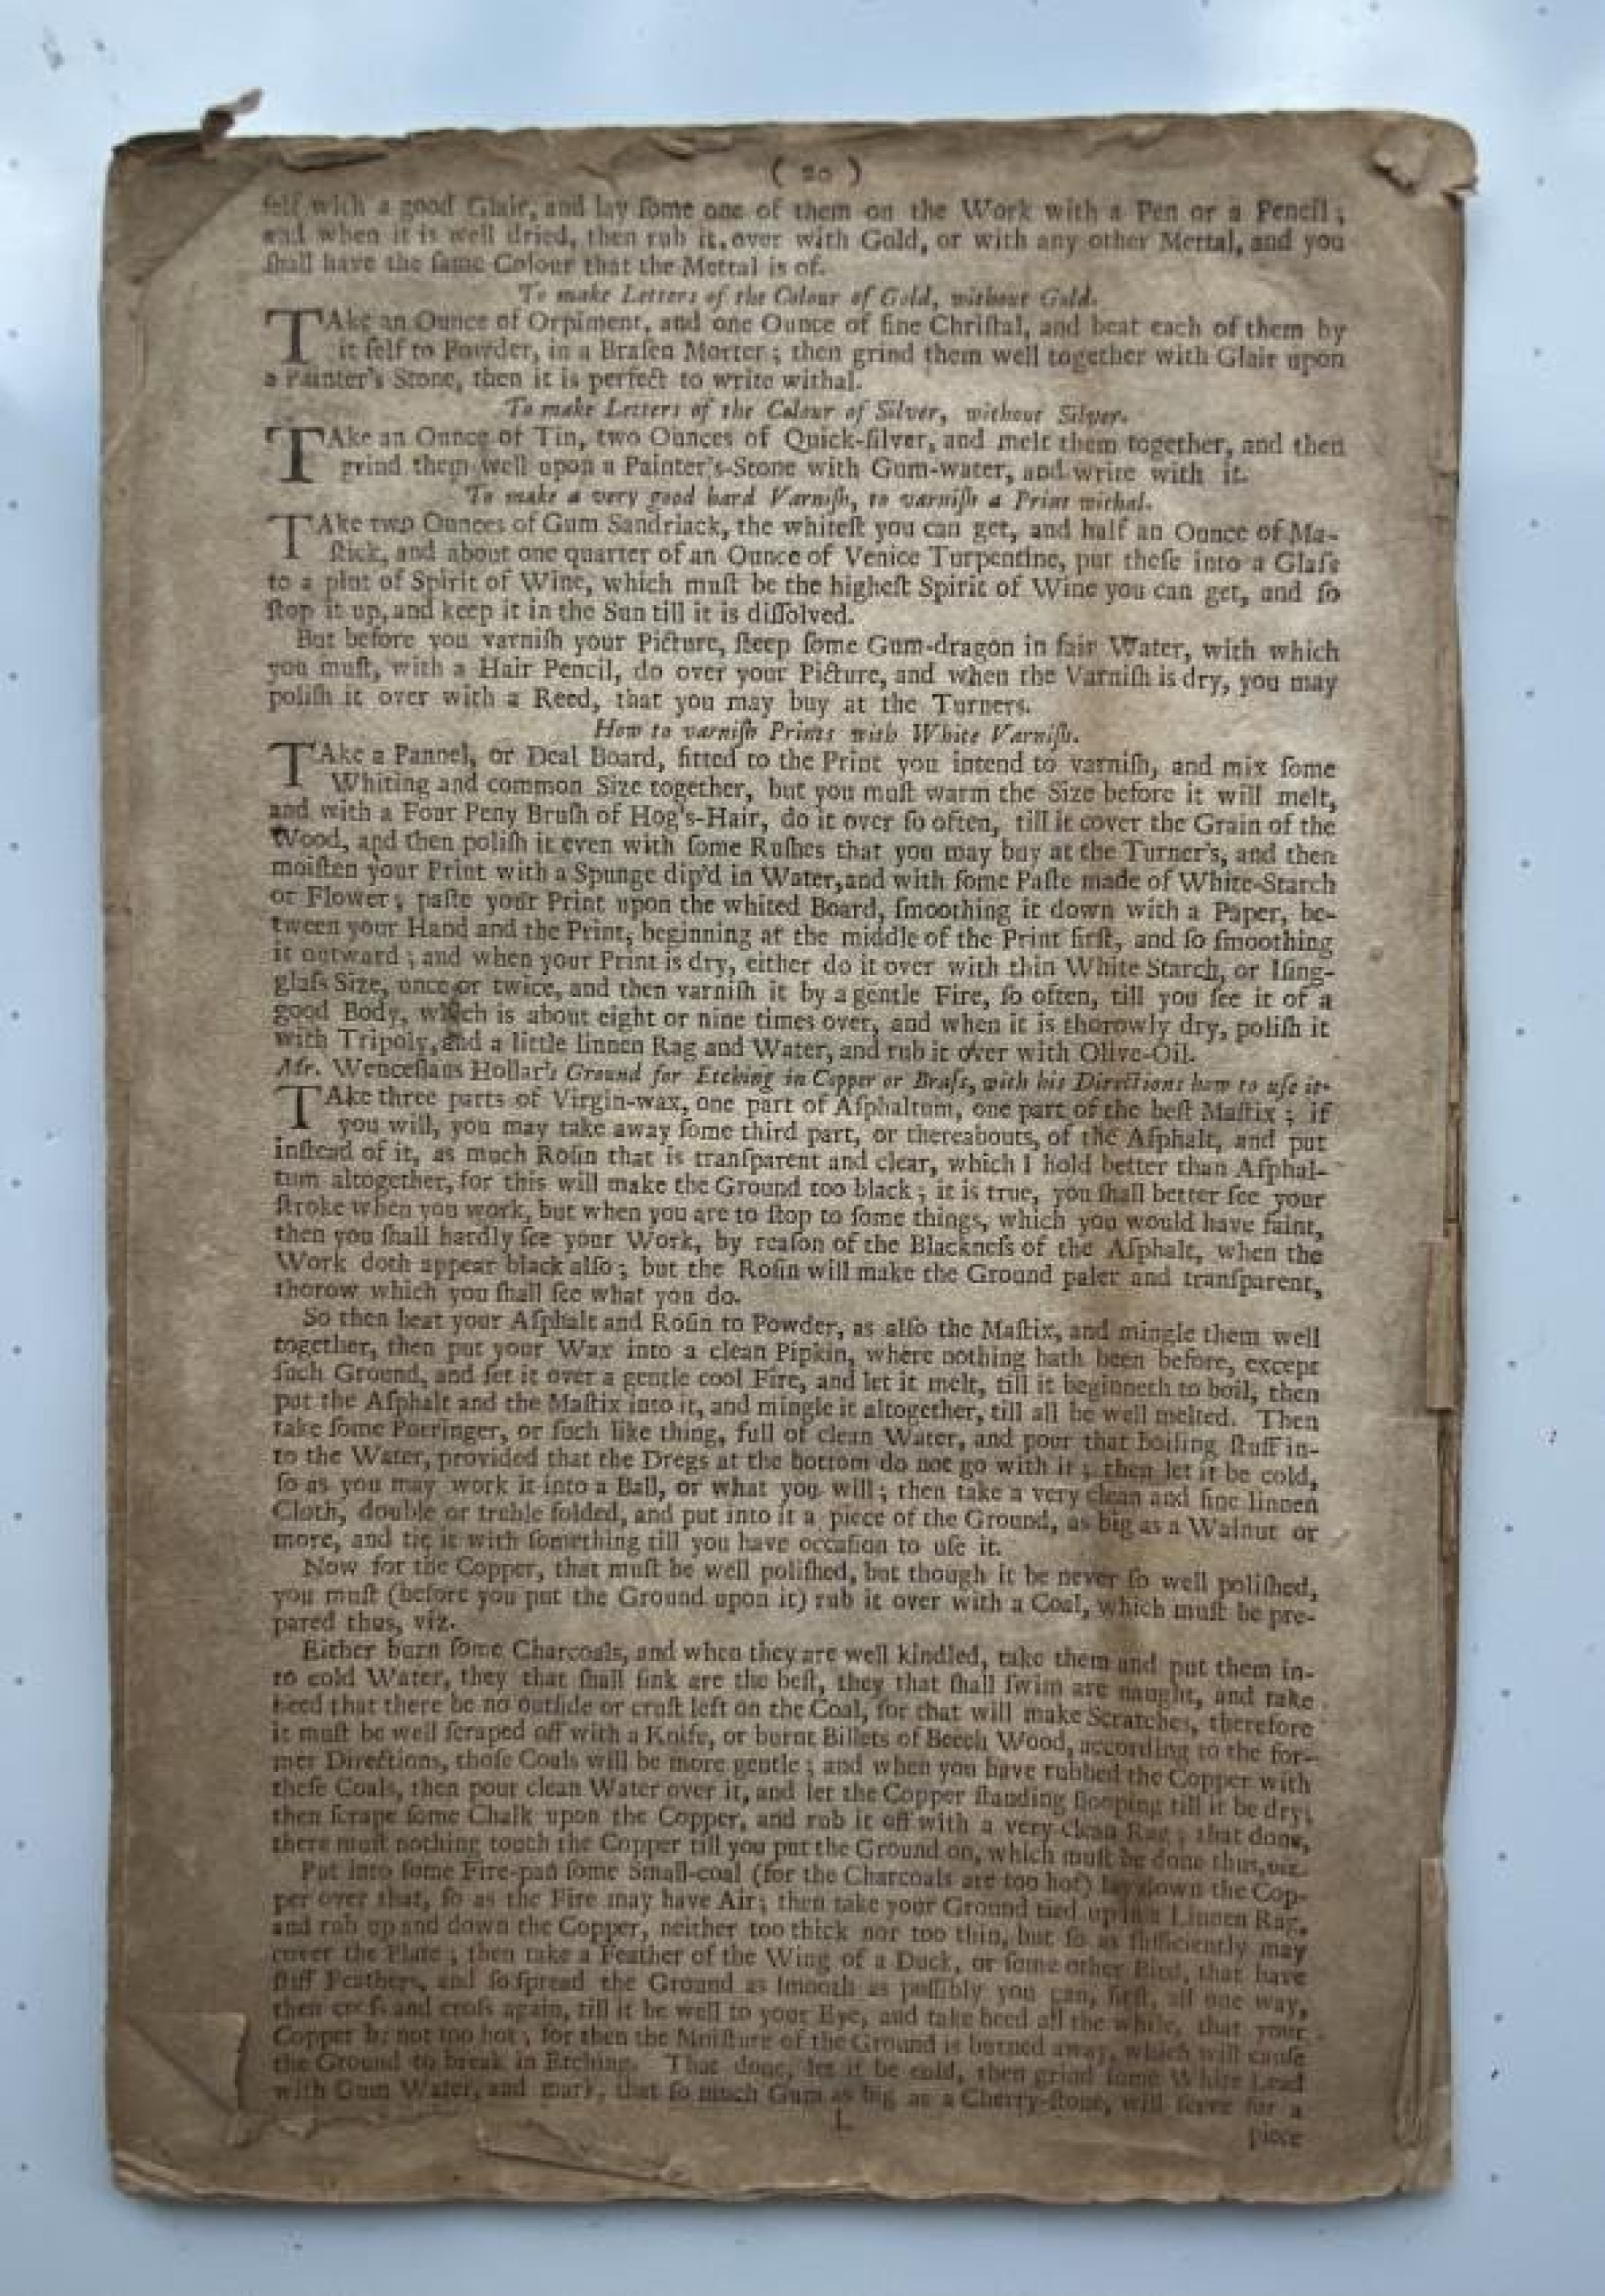 ( 20 )
ſelf with a good Glair, and lay ſome one of them on the Work with a Pen or a Pencil ;
and when it is well dried, then rub it over with Gold, or with any other Mettal, and you
ſhall have the ſame Colour that the Mettal is of.
To make Letters of the Colour of Gold, without Gold.
TAke an Ounce of Orpiment, and one Ounce of fine Chriſtal, and beat each of them by
it ſelf to Powder, in a Braſen Morter ; then grind them well together with Glair upon
a Painter's Stone, then it is perfect to write withal.
To make Letters of the Colour of Silver, without Silver.
TAke an Ounce of Tin, two Ounces of Quick-ſilver, and melt them together, and then
grind them well upon a Painter's-Stone with Gum-water, and write with it.
To make a very good hard Varniſh, to varniſh a Print withal.
TAke two Ounces of Gum Sandriack, the whiteſt you can get, and half an Ounce of Ma-
ſtick, and about one quarter of an Ounce of Venice Turpentine, put theſe into a Glaſs
to a pint of Spirit of Wine, which muſt be the higheſt Spirit of Wine you can get, and ſo
ſtop it up, and keep it in the Sun till it is diſſolved.
But before you varniſh your Picture, ſteep ſome Gum-dragon in fair Water, with which
you muſt, with a Hair Pencil, do over your Picture, and when the Varniſh is dry, you may
poliſh it over with a Reed, that you may buy at the Turners.
How to varniſh Prints with White Varniſh.
TAke a Pannel, or Deal Board, fitted to the Print you intend to varniſh, and mix ſome
Whiting and common Size together, but you muſt warm the Size before it will melt,
and with a Four Peny Bruſh of Hog's-Hair, do it over ſo often, till it cover the Grain of the
Wood, and then poliſh it even with ſome Ruſhes that you may buy at the Turner's, and then
moiſten your Print with a Spunge dip'd in Water, and with ſome Paſte made of White-Starch
or Flower ; paſte your Print upon the whited Board, ſmoothing it down with a Paper, be-
tween your Hand and the Print, beginning at the middle of the Print firſt, and ſo ſmoothing
it outward ; and when your Print is dry, either do it over with thin White Starch, or Iſing-
glaſs Size, once or twice, and then varniſh it by a gentle Fire, ſo often, till you ſee it of a
good Body, which is about eight or nine times over, and when it is thorowly dry, poliſh it
with Tripoly, and a little linnen Rag and Water, and rub it over with Olive-Oil.
Mr. Wenceſlaus Hollar's Ground for Etching in Copper or Braſs, with his Directions how to uſe it.
TAke three parts of Virgin-wax, one part of Aſphaltum, one part of the beſt Maſtix ; if
you will, you may take away ſome third part, or thereabouts, of the Aſphalt, and put
inſtead of it, as much Roſin that is tranſparent and clear, which I hold better than Aſphal-
tum altogether, for this will make the Ground too black ; it is true, you ſhall better ſee your
ſtroke when you work, but when you are to ſtop to ſome things, which you would have faint,
then you ſhall hardly ſee your Work, by reaſon of the Blackneſs of the Aſphalt, when the
Work doth appear black alſo ; but the Roſin will make the Ground paler and tranſparent,
thorow which you ſhall ſee what you do.
So then beat your Aſphalt and Roſin to Powder, as alſo the Maſtix, and mingle them well
together, then put your Wax into a clean Pipkin, where nothing hath been before, except
ſuch Ground, and ſet it over a gentle cool Fire, and let it melt, till it beginneth to boil, then
put the Aſphalt and the Maſtix into it, and mingle it altogether, till all be well melted. Then
take ſome Porringer, or ſuch like thing, full of clean Water, and pour that boiling ſtuff in-
to the Water, provided that the Dregs at the bottom do not go with it ; then let it be cold,
ſo as you may work it into a Ball, or what you will ; then take a very clean and fine linnen
Cloth, double or treble folded, and put into it a piece of the Ground, as big as a Walnut or
more, and tie it with ſomething till you have occaſion to uſe it.
Now for the Copper, that muſt be well poliſhed, but though it be never ſo well poliſhed,
you muſt (before you put the Ground upon it) rub it over with a Coal, which muſt be pre-
pared thus, viz.
Either burn ſome Charcoals, and when they are well kindled, take them and put them in-
to cold Water, they that ſhall ſink are the beſt, they that ſhall ſwim are naught, and take
heed that there be no outſide or cruſt left on the Coal, for that will make Scratches, therefore
it muſt be well ſcraped off with a Knife, or burnt Billets of Beech Wood, according to the for-
mer Directions, thoſe Coals will be more gentle ; and when you have rubbed the Copper with
theſe Coals, then pour clean Water over it, and let the Copper ſtanding ſlooping till it be dry;
then ſcrape ſome Chalk upon the Copper, and rub it off with a very clean Rag ; that done,
there muſt nothing touch the Copper till you put the Ground on, which muſt be done thus, viz.
Put into ſome Fire-pan ſome Small-coal (for the Charcoals are too hot) lay down the Cop-
per over that, ſo as the Fire may have Air ; then take your Ground tied up in a Linnen Rag,
and rub up and down the Copper, neither too thick nor too thin, but ſo as ſufficiently may
cover the Plate ; then take a Feather of the Wing of a Duck, or ſome other Bird, that have
ſtiff Feathers, and ſo ſpread the Ground as ſmooth as poſſibly you can, firſt, all one way,
then croſs and croſs again, till it be well to your Eye, and take heed all the while, that your
Copper be not too hot, for then the Moiſture of the Ground is burned away, which will cauſe
the Ground to break in Etching. That done, let it be cold, then grind ſome White Lead
with Gum Water, and mark, that ſo much Gum as big as a Cherry-ſtone, will ſerve for a
L
piece